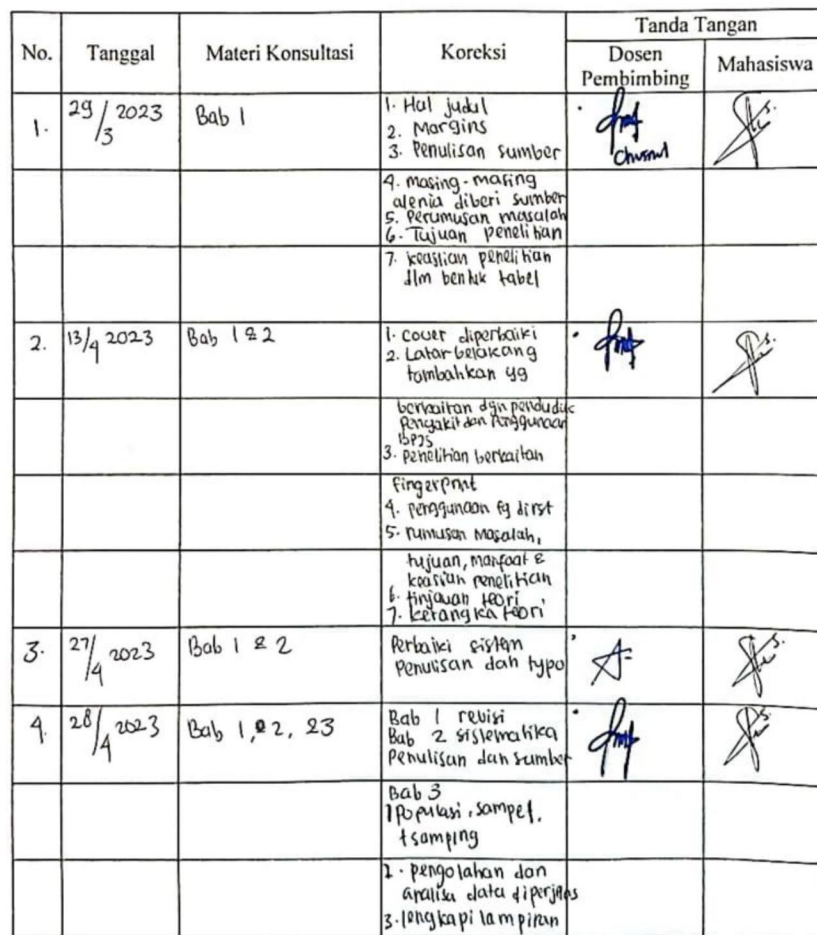 Tanda Tangan
No. Tanggal Materi Konsultasi Koreksi Dosen Pembimbing Mahasiswa
1. 29/3 2023 Bab 1 1. Hal judul
2. Margins
3. Penulisan sumber
Chusnul
4. masing-masing
alenia diberi sumber
5. Perumusan masalah
6. Tujuan penelitian
7. keaslian penelitian
dlm bentuk tabel
2. 13/4 2023 Bab 1 & 2 1. cover diperbaiki
2. Latar belakang
tambahkan yg
berkaitan dgn penduduk
Penyakit dan Penggunaan
BPJS
3. Penelitian berkaitan
Fingerprint
4. penggunaan
5. rumusan Masalah,
tujuan, manfaat &
keaslian penelitian
6. tinjauan teori
7. kerangka teori
3. 27/4 2023 Bab 1 & 2 Perbaiki sistem
Penulisan dan typo
4. 28/4 2023 Bab 1, & 2, &3 Bab 1 revisi
Bab 2 sistematika
Penulisan dan sumber
Bab 3
1 Populasi, sampel,
+ samping
2. pengolahan dan
analisa data diperjelas
3. lengkapi lampiran